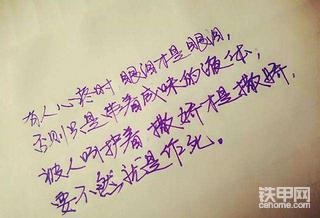 有人心疼时眼泪才是眼泪,
否则只是带着咸味的液体,
被人呵护着撒娇才是撒娇,
要不然就是作死。
铁甲网
cehome.com